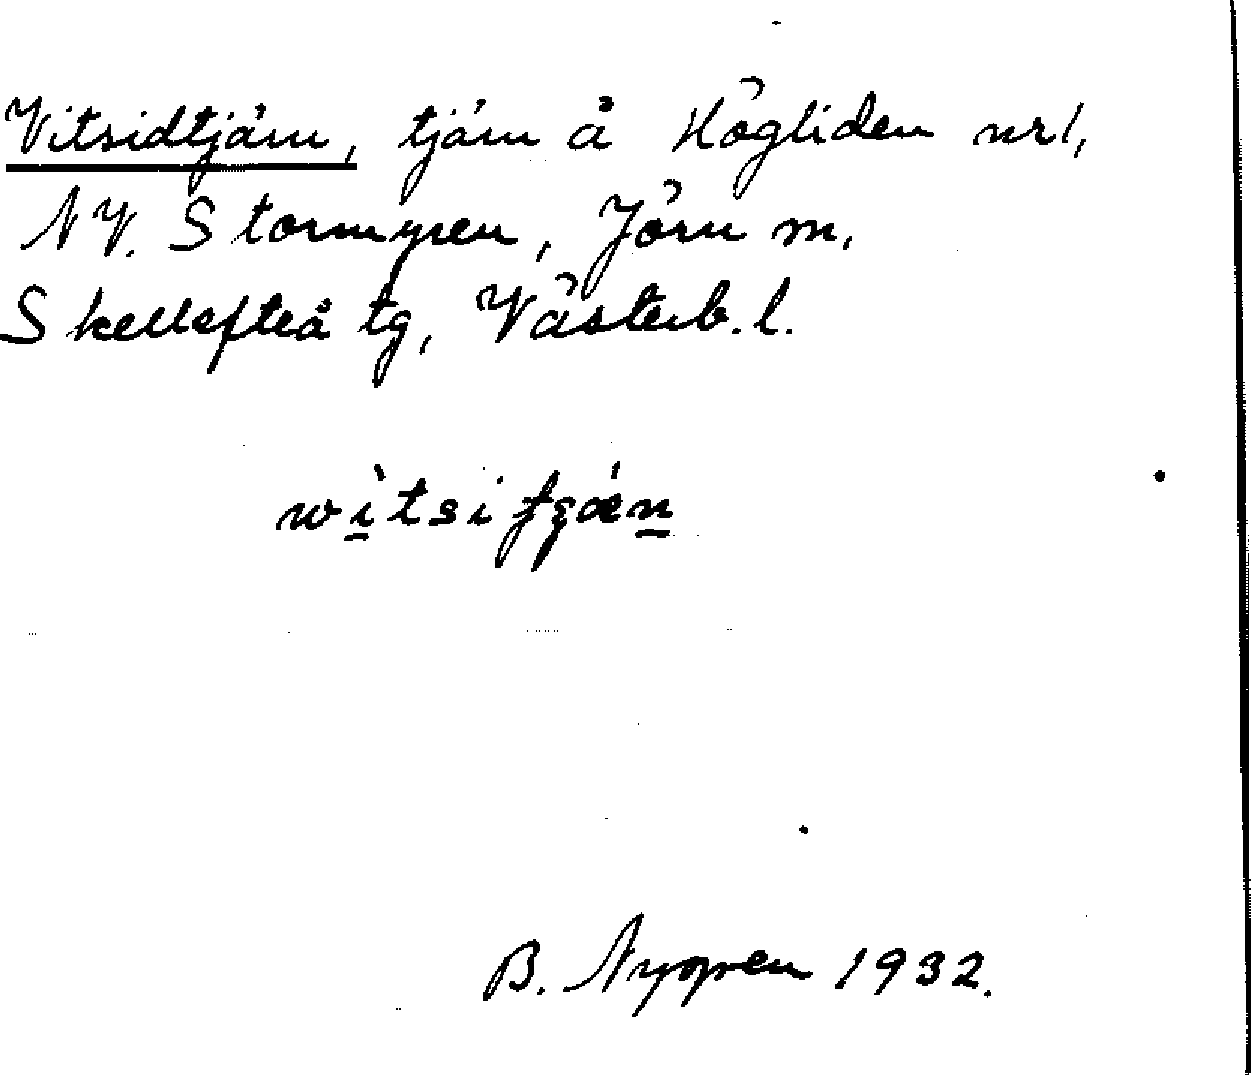 Vitsidtjärn, tjärn å Högliden nr 1,
NV. Stormyren, Jörn m.
Skellefteå tg, Västerb. l.
wìtsitjǽn
B. Nygren 1932.